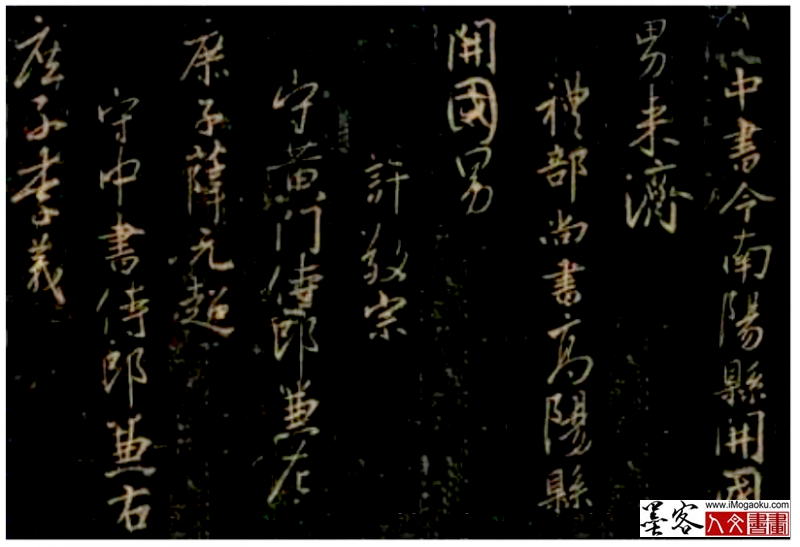 中書令南陽縣開國
男来濟
禮部尚書高陽縣
開國男
許敬宗
守黄门侍郎兼左
庶子薛元超
守中書侍郎兼右
庶子李義
www.iMogaoku.com
墨客
人文書畫